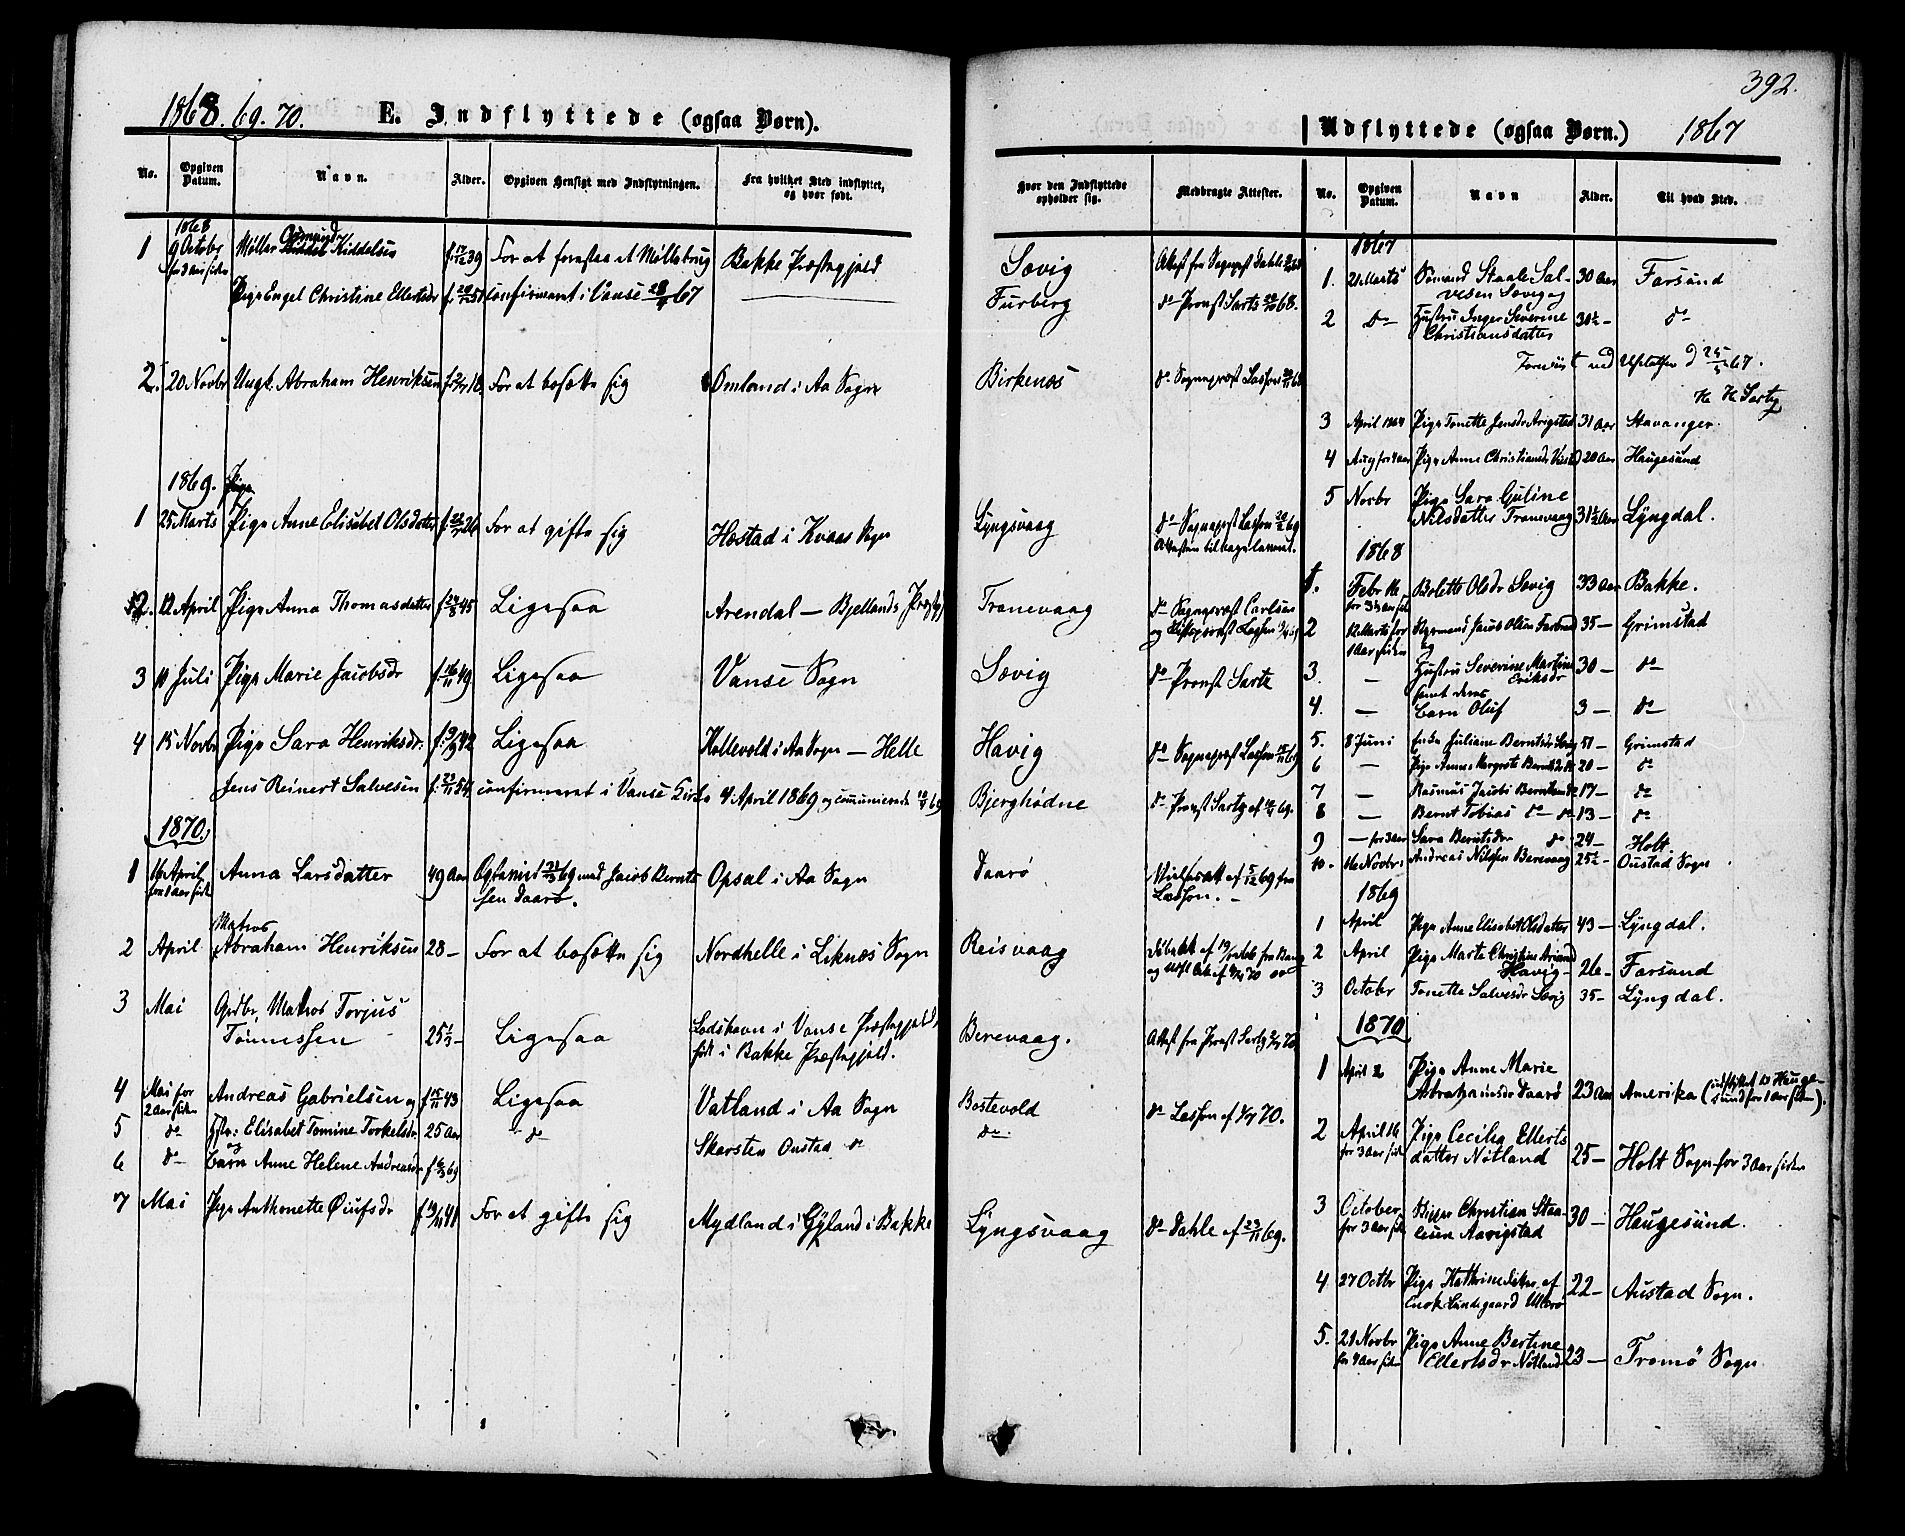 392.
1868. 69. 70. E. Indflyttede (ogsaa Børn).
No. Opgiven Datum. Navn. Alder. Opgiven Hensigt med Indflytningen. Fra hvilket Sted indflyttet, og hvor født.
1868
1 9 Octobr Møller Osmund Kiddelsen f. 39 For at forestaa et Møllebrug Bakke Præstegjeld
for 3 Aar siden
Pige Engel Christine Ellertsdr f. 51 confirmeret i Vanse 67
2. 20 Novbr Ungk. Abraham Henriksen For at bosætte sig Omland i Aa Sogn
1869. Pige
1 25 Marts Pige Anne Elisabet Olsdatter f. 26 For at gifte sig Hæstad i Kvaas Sogn
2. 12 April Pige Anna Thomasdatter f. 45 Ligesaa Arendal — Bjellands Præstegj
3 10 Juli Pige Marie Jacobsdr f. 49 Ligesaa Vanse Sogn
4 15 Novbr Pige Sara Henriksdr. f. 42 Ligesaa Kollevold i Aa Sogn — Helle
Jens Reinert Salvesen f. 54 confirmeret i Vanse Kirke 4 April 1869 og comunicerede 69
1870.
1 16 April Anna Larsdatter 49 Aar Ogtamis 69 med Jacob Berntsen Daarø. Opsal i Aa Sogn
for 1 Aar siden
2 April Matros Abraham Henriksen 28 — For at bosætte sig Nordhelle i Liknæs Sogn
3 Mai Grdbr. Matros Torjus
Tønnessen 25½ — Ligesaa Lodshavn i Vanse Præstegjeld, født i Bakke Præstegjeld.
4 Mai for 2 Aar siden Andreas Gabrielsen og f. 43 Ligesaa Vatland i Aa Sogn
5 do Hstr: Elisabet Tomine Torkelsdr 25 Aar do Skarsten Oustad do
og
6 do Barn Anne Helene Andreasdr f. 69
7 Mai Pige Anthonette f. 41 For at gifte sig Mydland i Gyland i Bakke
Hvor den Indflyttede opholder sig. Medbragte Attester.
Sævig Attest fra Sognepr. Dahle
Furberg do Provst Sartz 68.
Birkenæs do Sognepræst Lassen
Lyngsvaag do Sogneprest Lassen 69
Attesten tilbageleveret.
Tranevaag do Sognepræst Carlsen
Sævig do Provst Sartz
Havig do Sognepræst Lassen 69
Bjerghødne do Provst Sartz af 69.
Daarø af 5/12 69 fra Lassen. —
Reisvaag
Berevaag. Attest fra Provst Sartz 70.
Bostevold do Lassen af 70.
do
Lyngsvaag do Dahle af 23/11 69.
Udflyttede (ogsaa Børn.) 1867
No. Opgiven Datum. Navn Alder. Til hvad Sted.
1867
1. 21 Marts Sømand Staale Salvesen Sævig og 30 Aar Farsund
2 do Hustru Inger Severine Christiansdatter 30½ — do
67.
H Sartz
3 April 1864 Pige Tonette Jensdr Avigstad 31 Aar Stavanger.
4 Aug for 4 Aar Pige Anne Christiansdr 20 Aar Haugesund
5 Novbr Pige Sara Guline
Nilsdatter Tranevaag 31½ Aar Lyngdal.
1868
1. Febr 16 Bolette Olsdr Sævig 33 Aar Bakke.
2 12 Marts for 1 Aar siden Jacob Olsen 35 — Grimstad
og
3. — Hustru Severine Martine Eriksdr 30 — do
samt deres
4. — Barn Oluf 3 — do
5. 8 Juni Enke Juliane Berntsdr 51 — Grimstad
6 — Pige Anne Margrete 20 — do
7 — Rasmus Jacobi Berntsen 17 — do
8 — Bernt Tobias do do 13 — do
9 — for 3 Aar Sara Berntsdr do 24 — Holt
10. 16 Novbr Andreas Nilssen Berevaag 25½ — Oustad Sogn
1869
1 April Pige Anne Elisabet Olsdatter 43 — Lyngdal.
2 April Pige Marte Christine
Havig — 26 — Farsund
3 October Tonette Salvesdr Sævig 35 — Lyngdal.
1870
1 April 2 Pige Anne Marie
Abrahamsdr Daarø 23 Aar Amerika (indflyttet til Haugesund for 1 Aar siden).
2 April 16 for 3 Aar siden Pige Cecilia Ellertsdatter Nøtland 25 — Holt Sogn for 3 Aar siden
3 October for 3 Aar siden Christian Staalesen Aavigstad 30 — Haugesund.
4 27 Octbr Pige Kathrine Datter af
Enok Lindegaard Ullerø 22 — Austad Sogn.
5. 21 Novbr for 4 Aar siden Pige Anne Bertine
Ellertsdr Nøtland 23 — Tromø Sogn